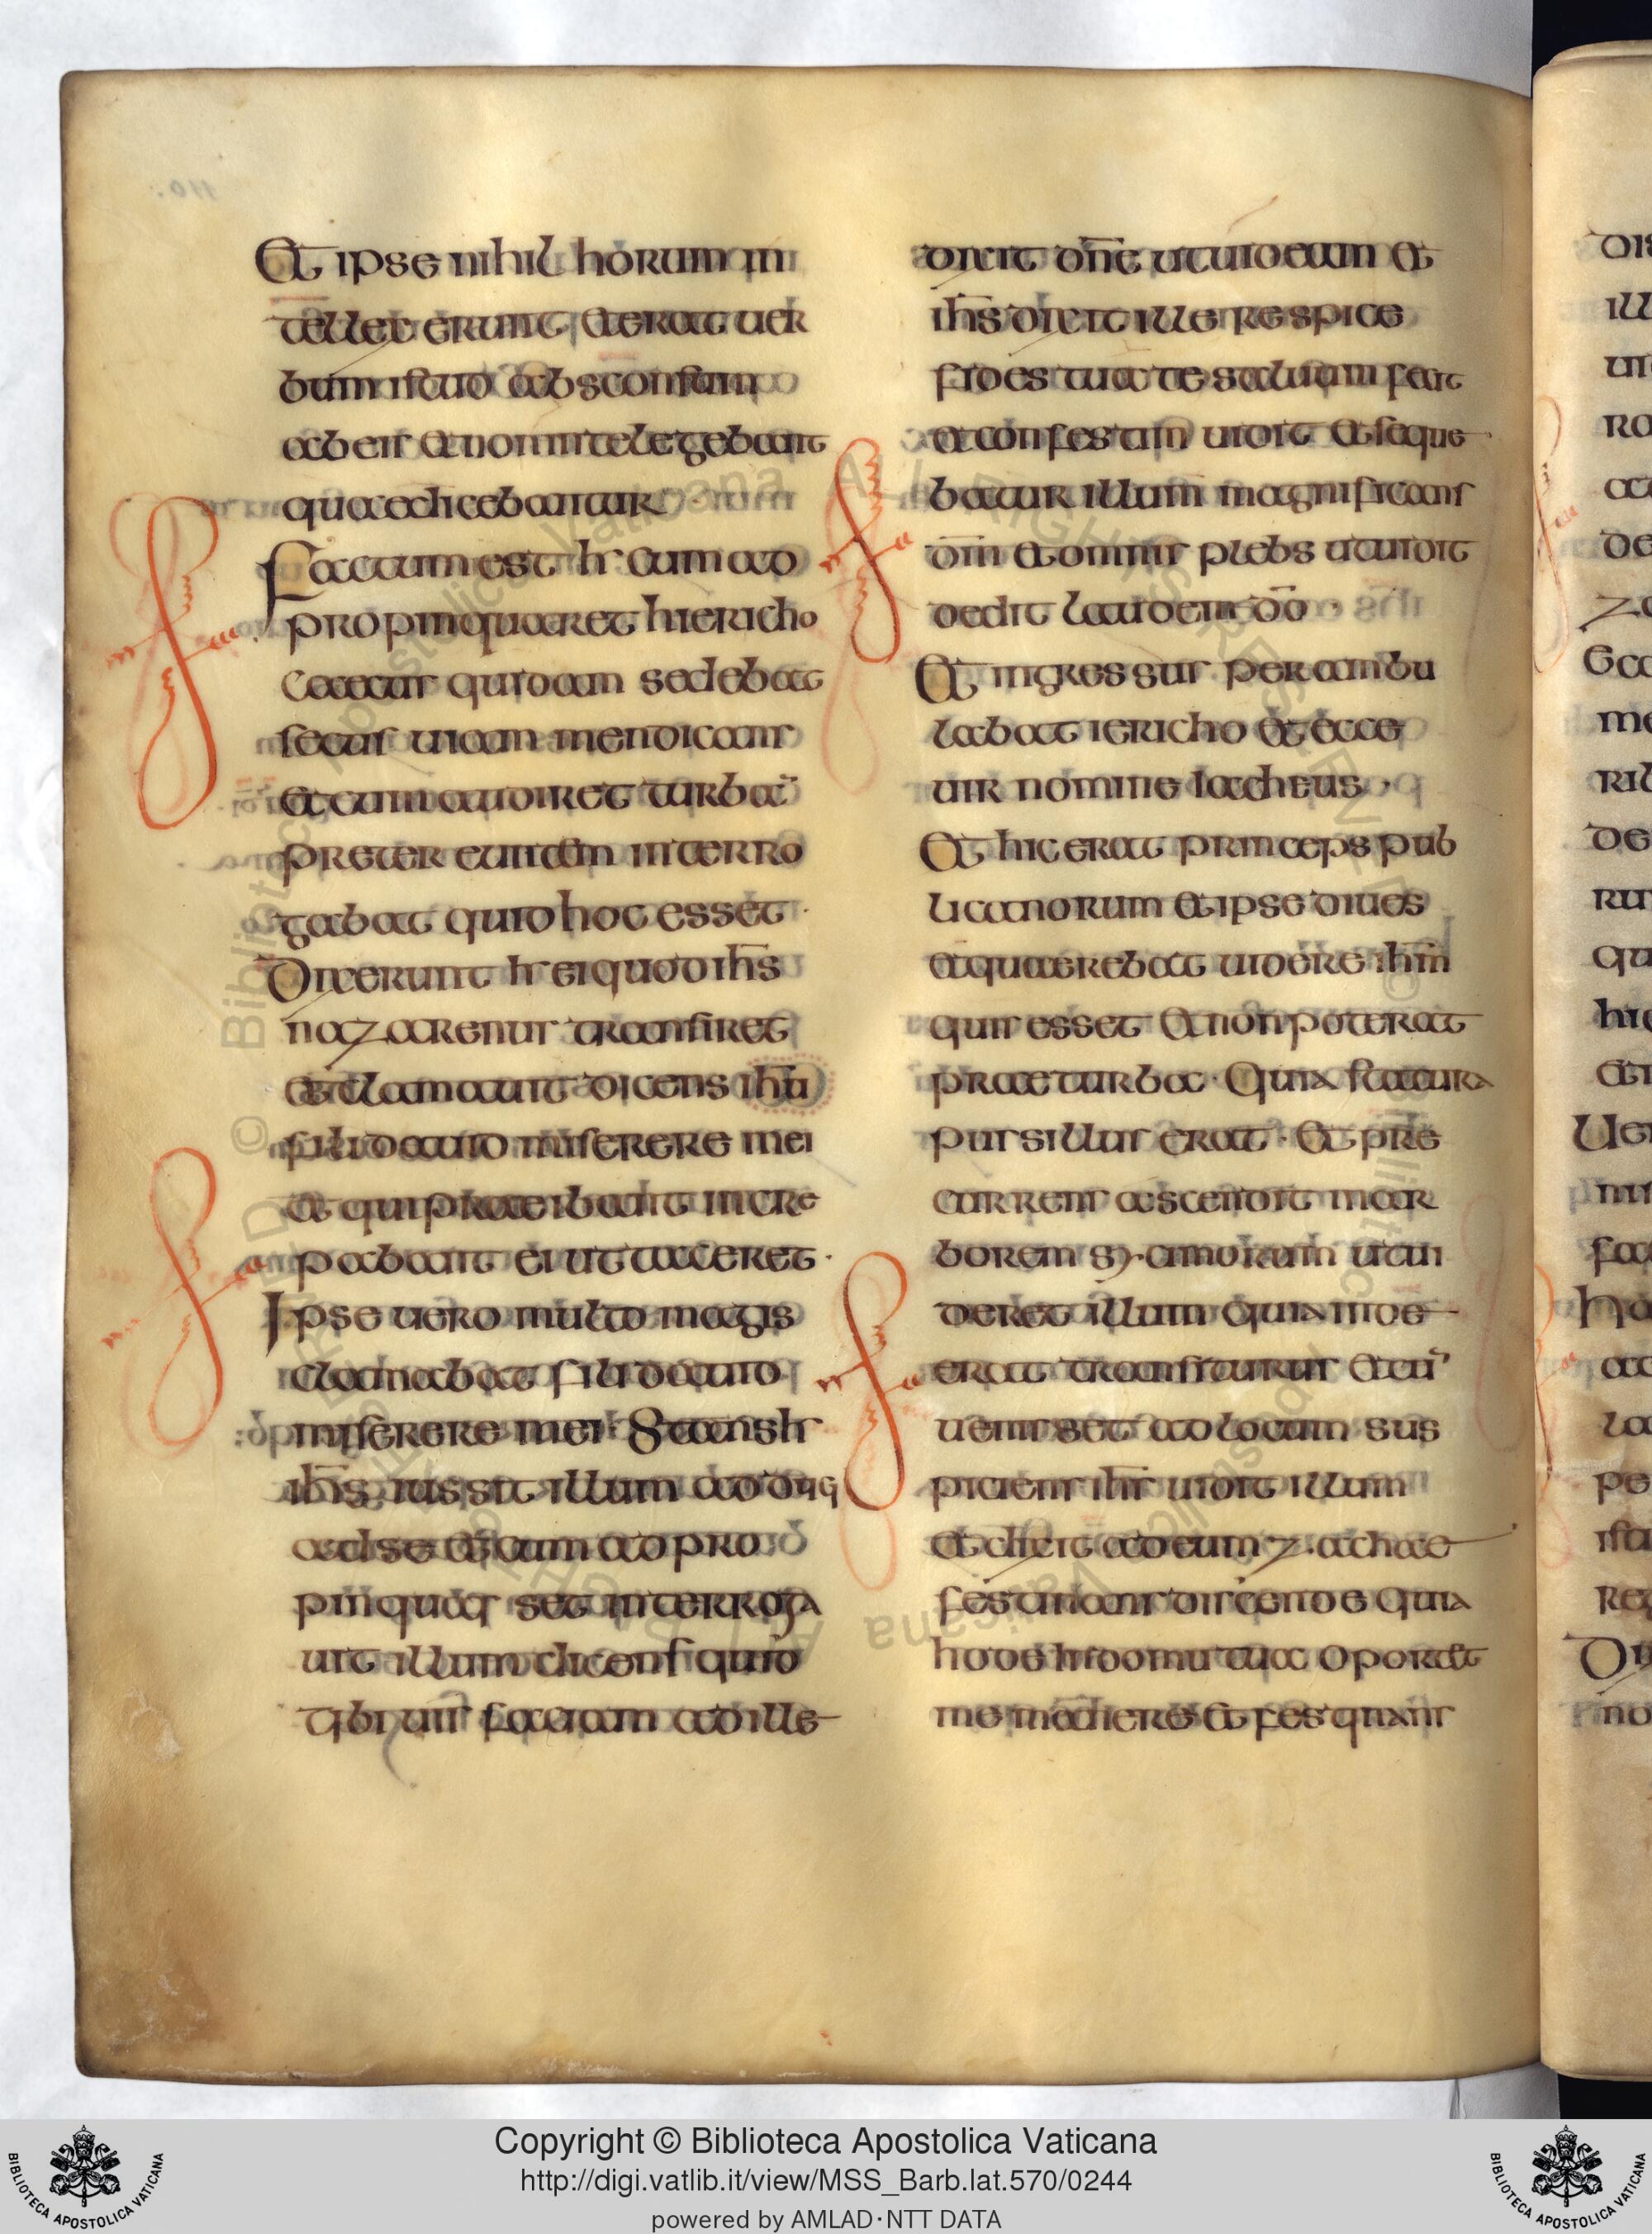 Et ipse nihil horum in
tellex erunt et erat uer
bum istud absconsum
ab eis et non intelegebant
quae dicebantur
Factum est hr cum ad
propinquaret hiericho
Caecus quidam sedebat
secus uiam mendicans
et cum audiret turbā
preter euntem interro
gabat quid hoc esset ·
Dixerunt hr ei quod ihs̄
nazarenus transiret
et clamauit dicens ihū
fili dauid miserere mei
et qui praeibant incre
pabant ei ut taceret ·
Ipse uero multo magis
clamabat fili dauid
miserere mei · Stans hr
ihs̄ iussit illum
ad se et cum ad pro
pinquas set interroga
uit illum dicens quid
tibi uis faciam ad ille
dixit dn̄e ut uideam et
ihs̄ dixit ille respice
fides tua te saluum fecit
et confestim uidit et seque
batur illum magnificans
dm̄ et omnis plebs ut uidit
dedit laudem dō ·
Et ingressus perambu
labat iericho et ecce
uir nomine Iacheus ·
Et hic erat princeps pub
licanorum et ipse diues
et quaerebat uidere ihm̄
quis esset et non poterat
prae turba · Quia statura
pussillus erat · Et pre
currens ascendit in ar
borem ut ui
deret illum quia inde
erat transiturus et cū
uenisset ad locum sus
piciens ihs̄ uidit illum
et dixit ad eum zachae
festinans discende quia
hodie in domu tua oportet
me manere et festinans
Copyright © Biblioteca Apostolica Vaticana
http://digi.vatlib.it/view/MSS_Barb.lat.570/0244
powered by AMLAD·NTT DATA
BIBLIOTECA APOSTOLICA VATICANA
BIBLIOTECA APOSTOLICA VATICANA